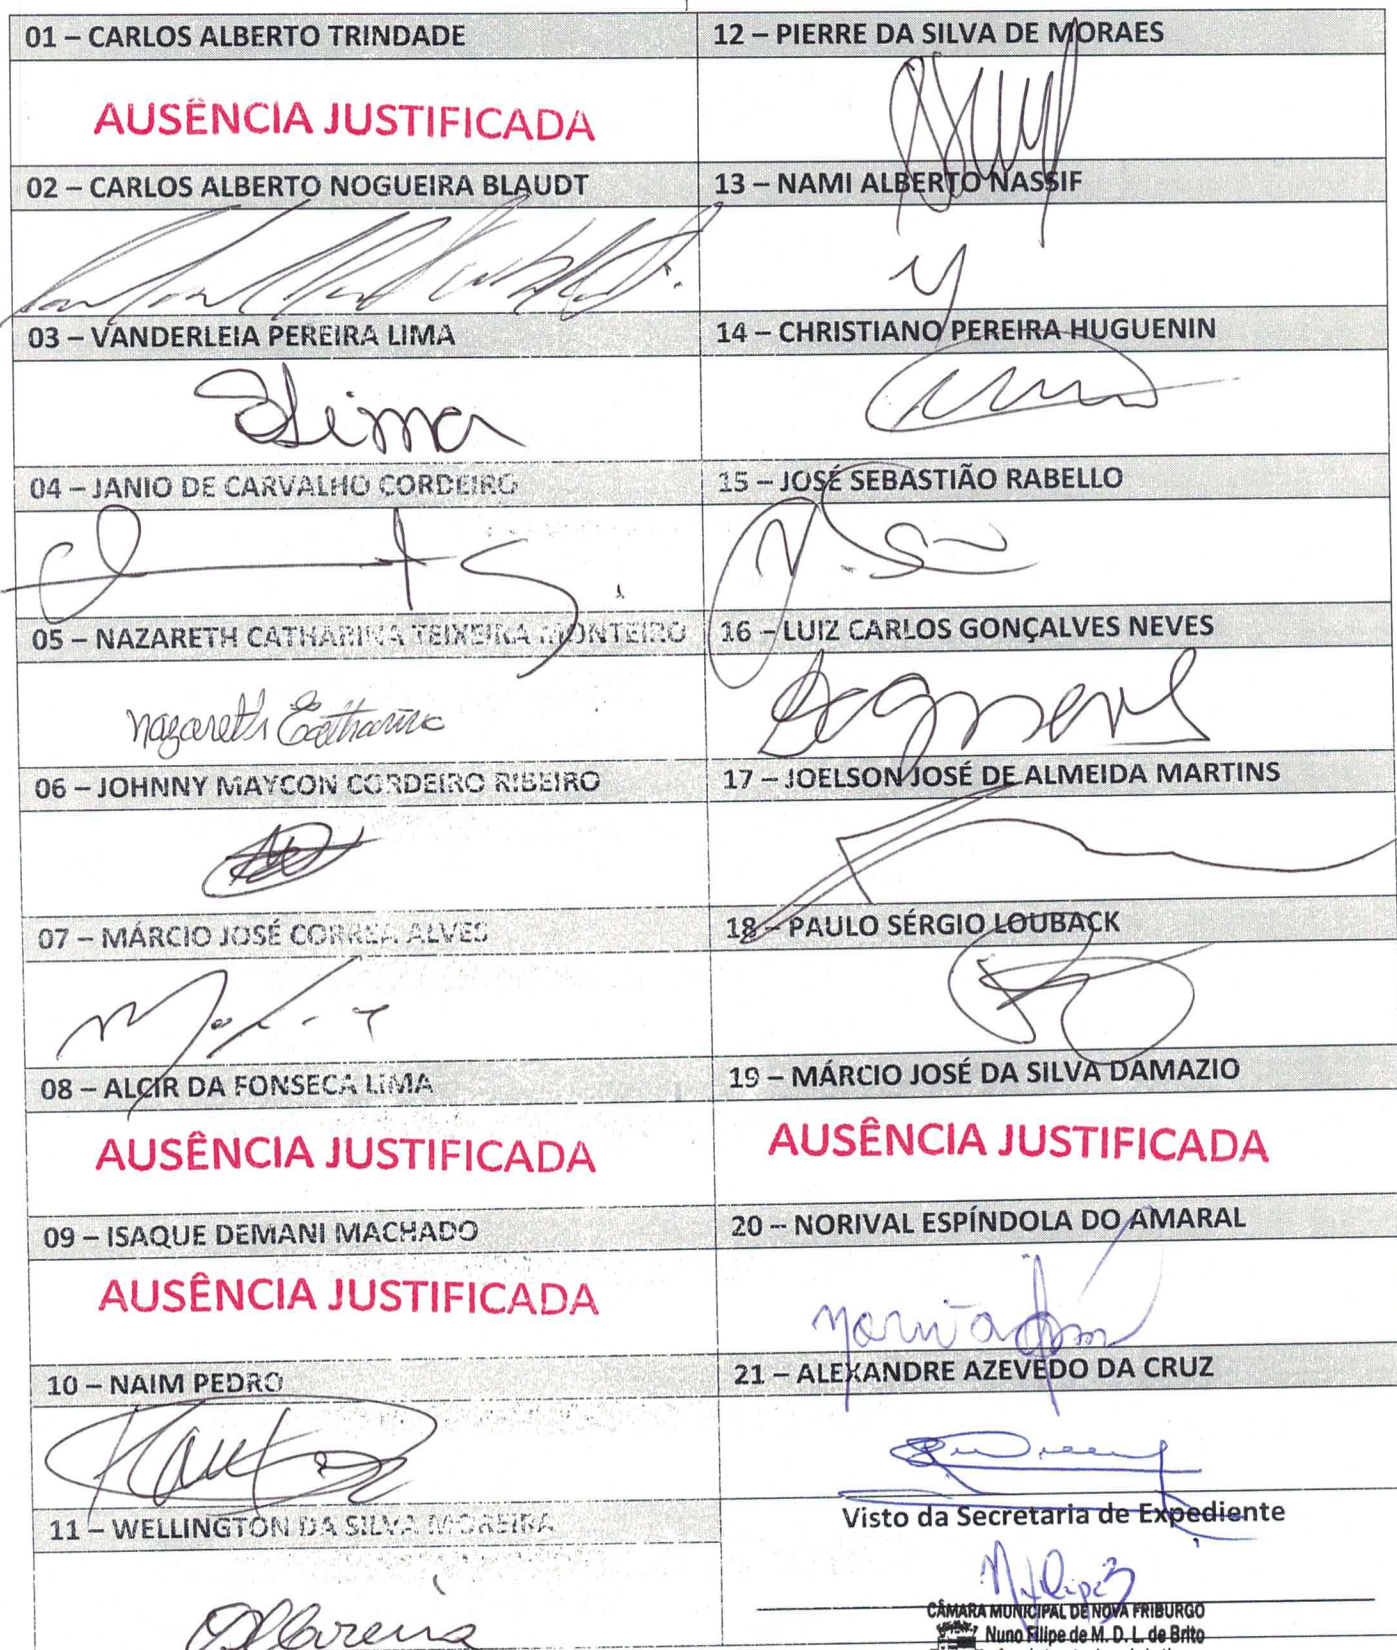 01 – CARLOS ALBERTO TRINDADE
AUSÊNCIA JUSTIFICADA
02 – CARLOS ALBERTO NOGUEIRA BLAUDT
03 – VANDERLEIA PEREIRA LIMA
Lima
04 – JANIO DE CARVALHO CORDEIRO
05 – NAZARETH CATHARINA TEIXEIRA MONTEIRO
Nazareth Catharina
06 – JOHNNY MAYCON CORDEIRO RIBEIRO
07 – MÁRCIO JOSÉ CORREA ALVES
08 – ALCIR DA FONSECA LIMA
AUSÊNCIA JUSTIFICADA
09 – ISAQUE DEMANI MACHADO
AUSÊNCIA JUSTIFICADA
10 – NAIM PEDRO
11 – WELLINGTON DA SILVA MOREIRA
12 – PIERRE DA SILVA DE MORAES
13 – NAMI ALBERTO NASSIF
14 – CHRISTIANO PEREIRA HUGUENIN
15 – JOSÉ SEBASTIÃO RABELLO
16 – LUIZ CARLOS GONÇALVES NEVES
17 – JOELSON JOSÉ DE ALMEIDA MARTINS
18 – PAULO SÉRGIO LOUBACK
19 – MÁRCIO JOSÉ DA SILVA DAMAZIO
AUSÊNCIA JUSTIFICADA
20 – NORIVAL ESPÍNDOLA DO AMARAL
21 – ALEXANDRE AZEVEDO DA CRUZ
Visto da Secretaria de Expediente
CÂMARA MUNICIPAL DE NOVA FRIBURGO
Nuno Filipe de M. D. L. de Brito